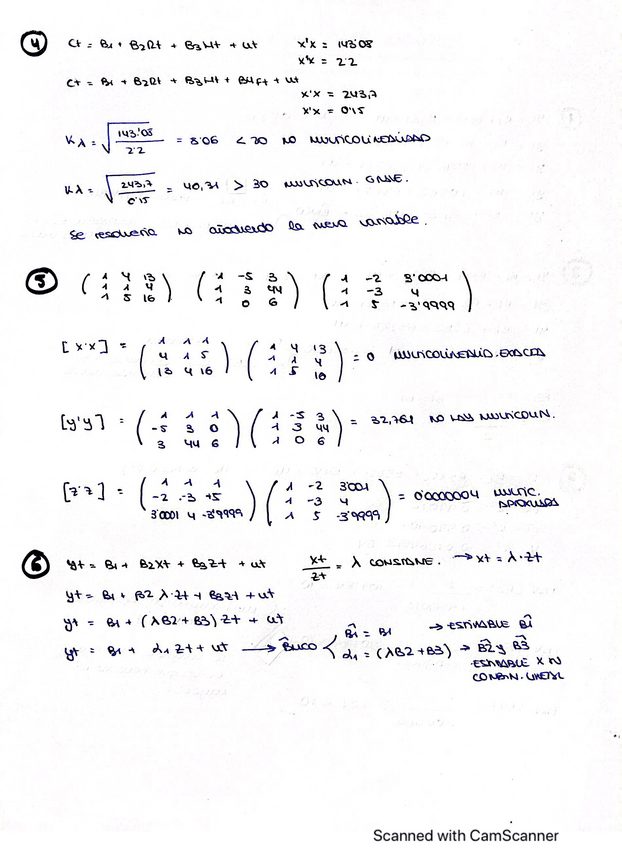 4 Ct = B1 + B2Rt + B3Wt + ut x'x = 143'08
x'x = 2'2
Ct = B1 + B2Rt + B3Wt + B4Ft + ut
x'x = 243,7
x'x = 0'15
Kλ = √(143'08 / 2'2) = 8'06 < 20 NO MULTICOLINEALIDAD
Kλ = √(243,7 / 0'15) = 40,31 > 30 MULTICOLIN. GRAVE.
Se resolvería no añadiendo la nueva variable.
5 ( 1 4 13 ) ( 1 -5 3 ) ( 1 -2 3'0001 )
( 1 1 4 ) ( 1 3 44 ) ( 1 -3 4 )
( 1 5 16 ) ( 1 0 6 ) ( 1 5 -3'9999 )
( 1 1 1 ) ( 1 4 13 )
[x'x] = ( 4 1 5 ) · ( 1 1 4 ) = 0 MULTICOLINEALID. EXACTA
( 13 4 16 ) ( 1 5 16 )
( 1 1 1 ) ( 1 -5 3 )
[y'y] = ( -5 3 0 ) ( 1 3 44 ) = 32,761 NO HAY MULTICOLIN.
( 3 44 6 ) ( 1 0 6 )
( 1 1 1 ) ( 1 -2 3'001 )
[z'z] = ( -2 -3 +5 ) ( 1 -3 4 ) = 0'0000004 MULTIC.
( 3'0001 4 -3'9999 ) ( 1 5 -3'9999 )
6 yt = B1 + B2Xt + B3Zt + ut xt / zt = λ CONSTANTE. → xt = λ·zt
yt = B1 + B2 λ·zt + B3zt + ut
yt = B1 + (λB2 + B3)·zt + ut
yt = B1 + α1 zt + ut → B̂MCO B̂1 = B1 → ESTIMABLE B̂1
α1 = (λB2 + B3) → B̂2 y B̂3
ESTIMABLE X SU
COMBIN. LINEAL
Scanned with CamScanner